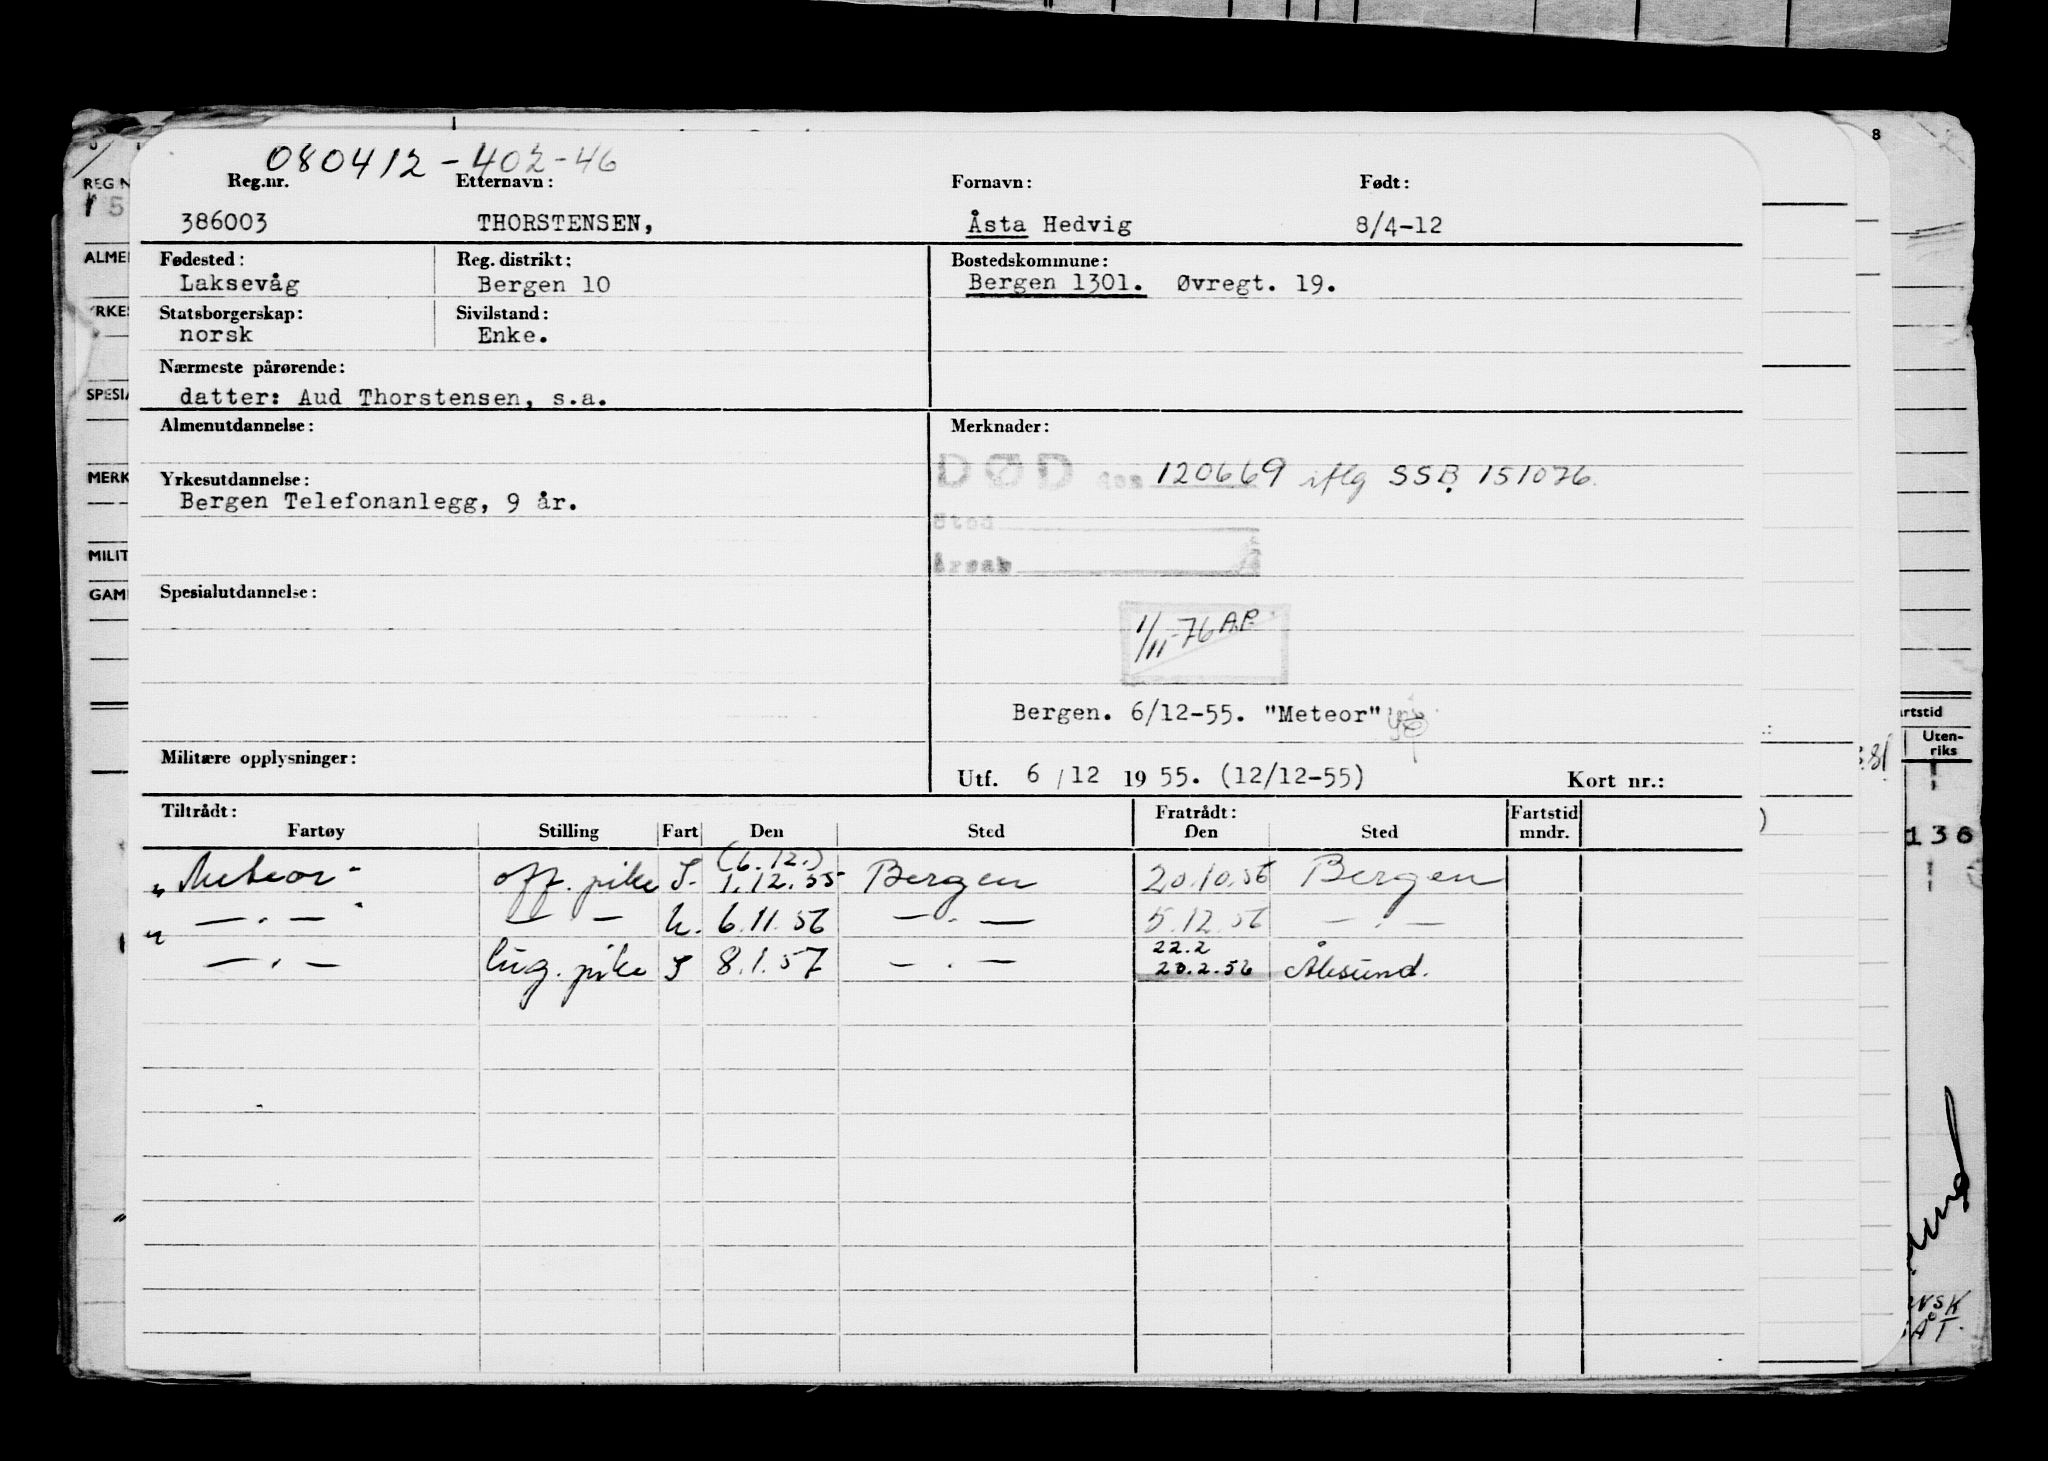 080412-402-46
Reg.nr. Etternavn: Fornavn: Født:
386003 THORSTENSEN, Åsta Hedvig 8/4-12
Fødested: Reg. distrikt: Bostedskommune:
Laksevåg Bergen 10 Bergen 1301. Øvregt. 19.
Statsborgerskap: Sivilstand:
norsk Enke.
Nærmeste pårørende:
datter: Aud Thorstensen, s.a.
Almenutdannelse: Merknader:
DØD den 120669 iflg SSB 151076.
Yrkesutdannelse:
Bergen Telefonanlegg, 9 år.
Sted
Årsak
Spesialutdannelse:
1/11-76 A.P.
Bergen. 6/12-55. "Meteor"
Militære opplysninger:
Utf. 6/12 1955. (12/12-55) Kort nr.:
Tiltrådt: Fratrådt: Fartstid
Fartøy Stilling Fart Den Sted Den Sted mndr.
(6.12.)
"Meteor" off. pike I. 1.12.55 Bergen 20.10.56 Bergen
" — . — " — — U. 6.11.56 — . — 5.12.56 — . —
22.2
— . — lug. pike I 8.1.57 — . — 20.2.56 Ålesund.
REG N
5
ALME
YRKES
SPESIA
MERK
MILIT
GAM
8
rtstid
Uten-
riks
136
NSK
ÅT.